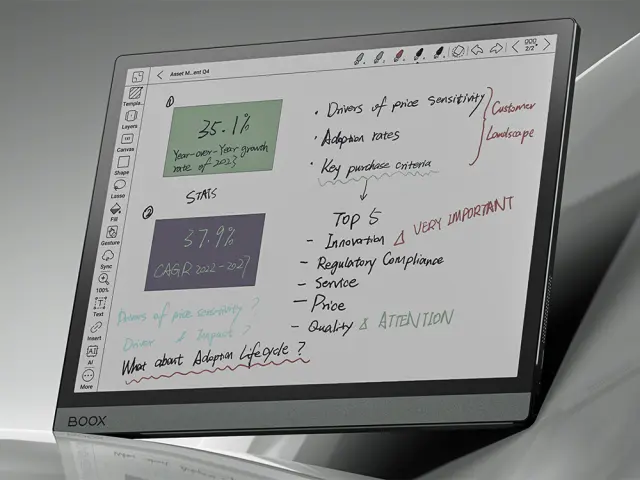 Asset M...ent Q4
2/2
Templa...
Layers
Canvas
Shape
Lasso
Fill
Gesture
Sync
100%
Text
Insert
AI
More
1
35.1%
Year-over-Year growth
rate of 2023
STATS
2
37.9%
CAGR 2022-2027
Drivers of price sensitivity ?
Driver & Impact ?
What about Adoption Lifecycle ?
• Drivers of price sensitivity
• Adoption rates
• Key purchase criteria
Customer
Landscape
Top 5
- Innovation △ VERY IMPORTANT
- Regulatory Compliance
- Service
- Price
- Quality & ATTENTION
BOOX